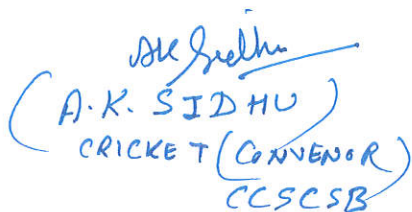 AK Sidhu
(A.K. SIDHU)
CRICKET (CONVENOR)
CCSCSB